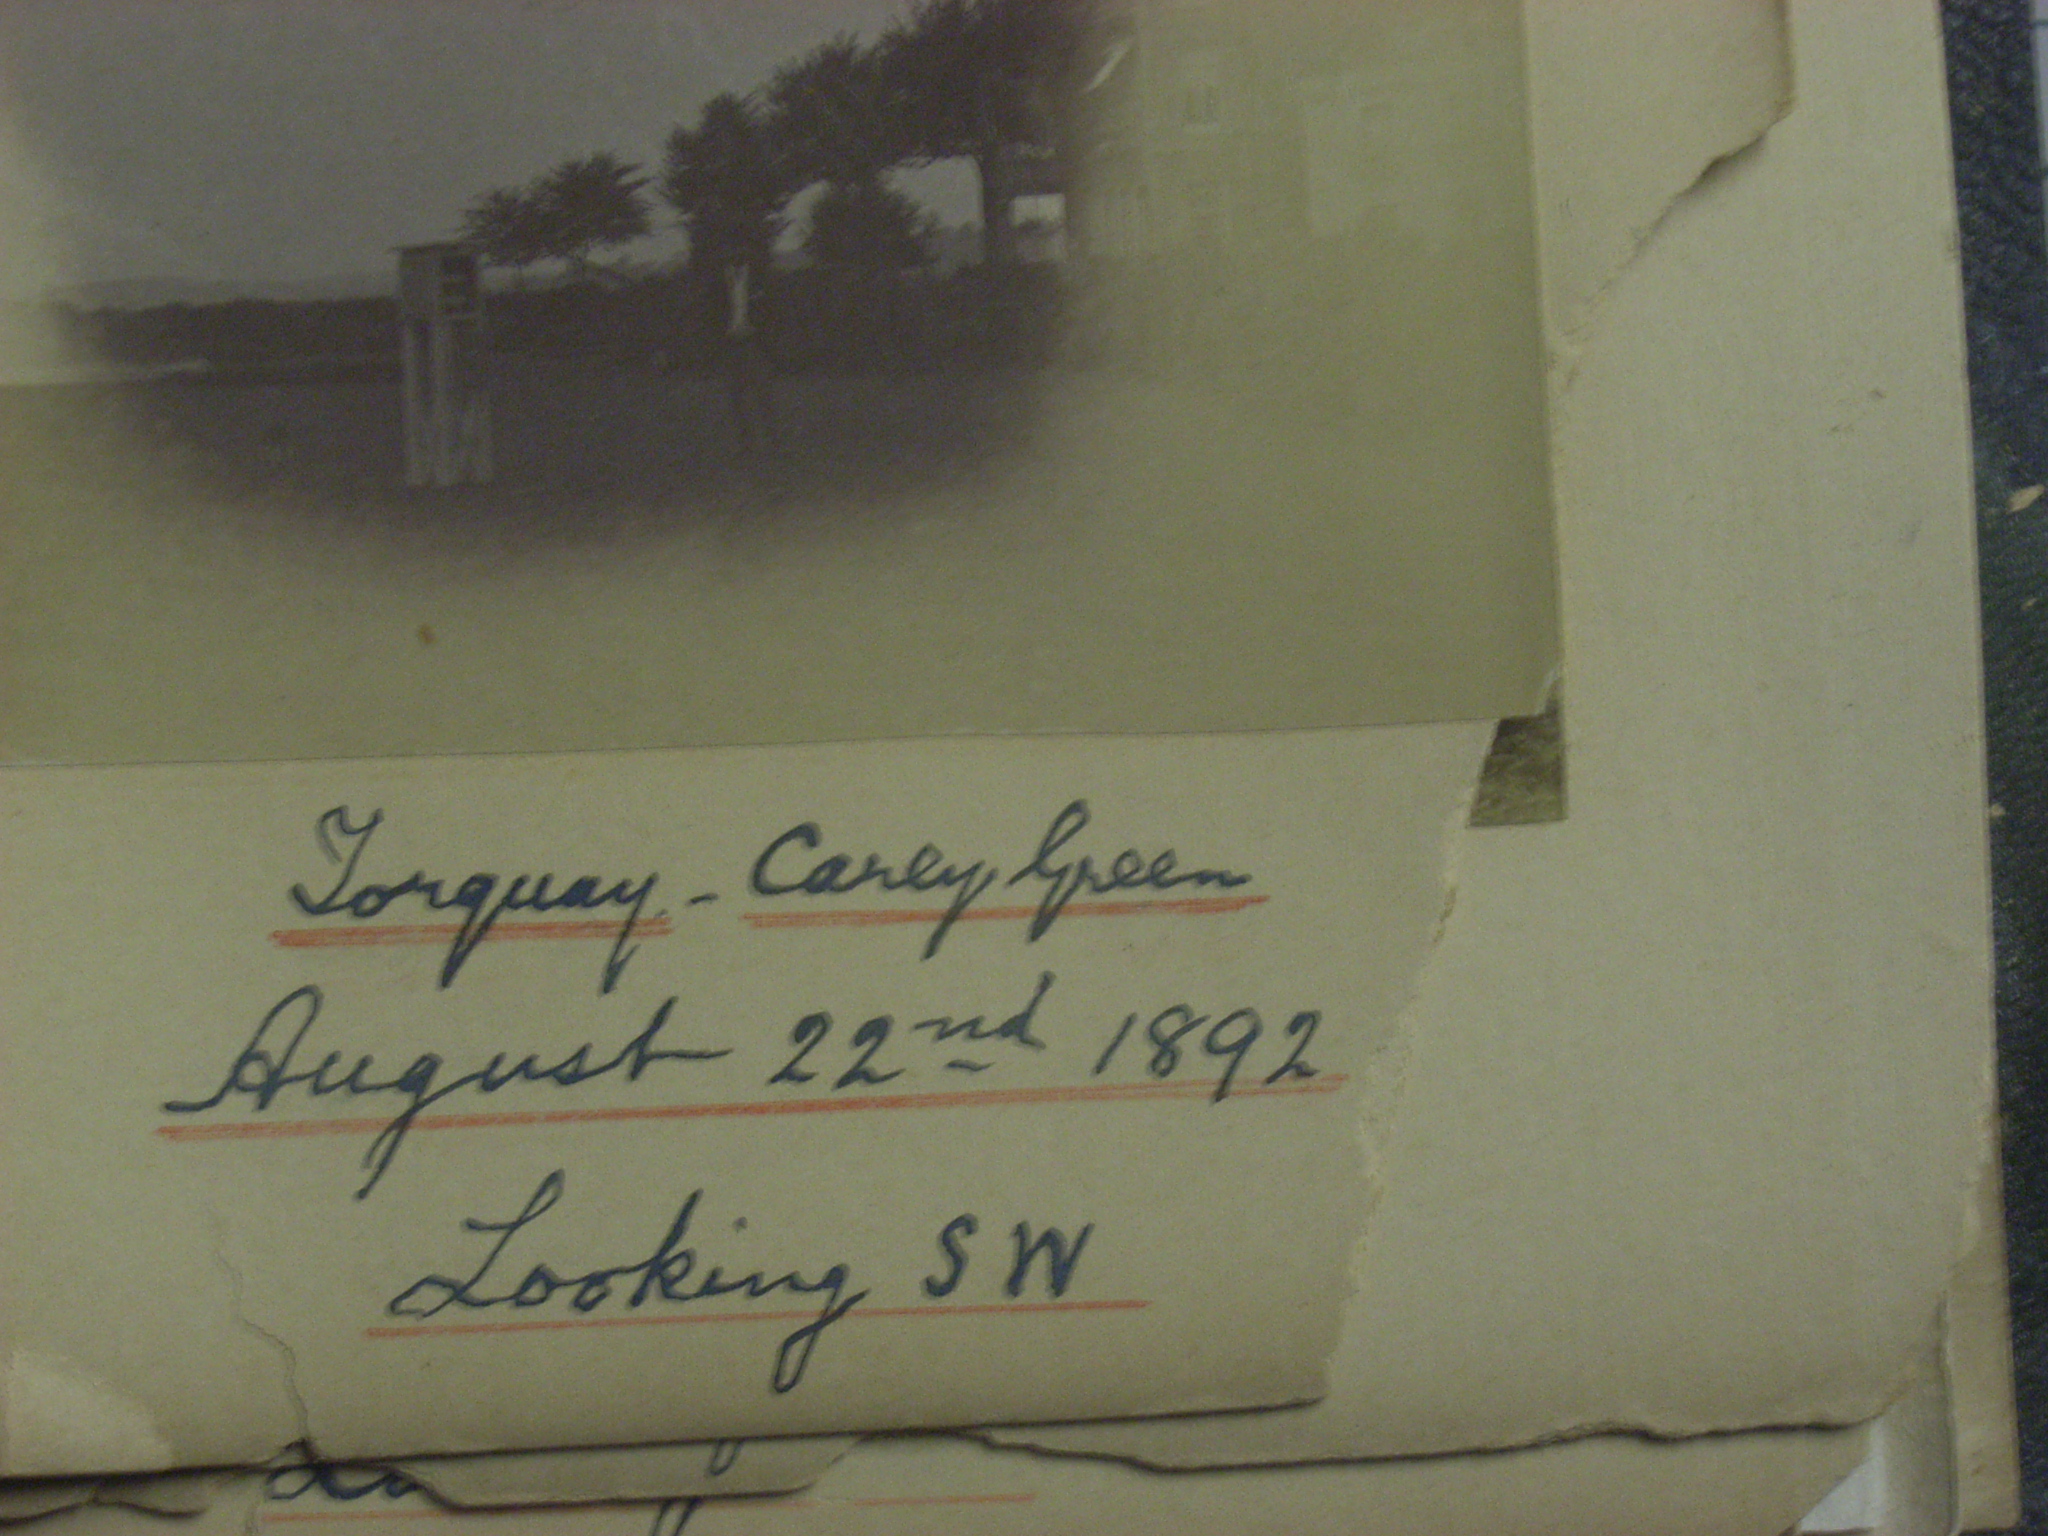 Torquay - Carey Green
August 22nd 1892
Looking SW